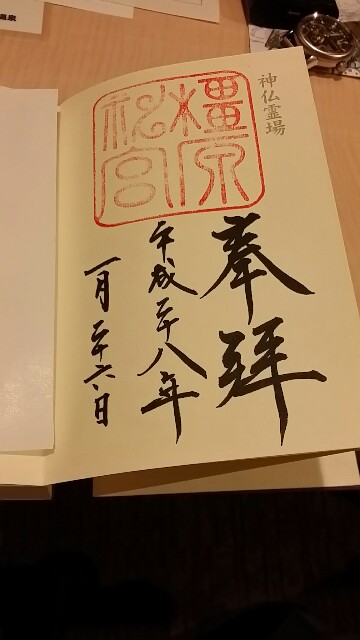 神仏霊場
奉拝
橿原神宮
平成二十八年
一月二十六日